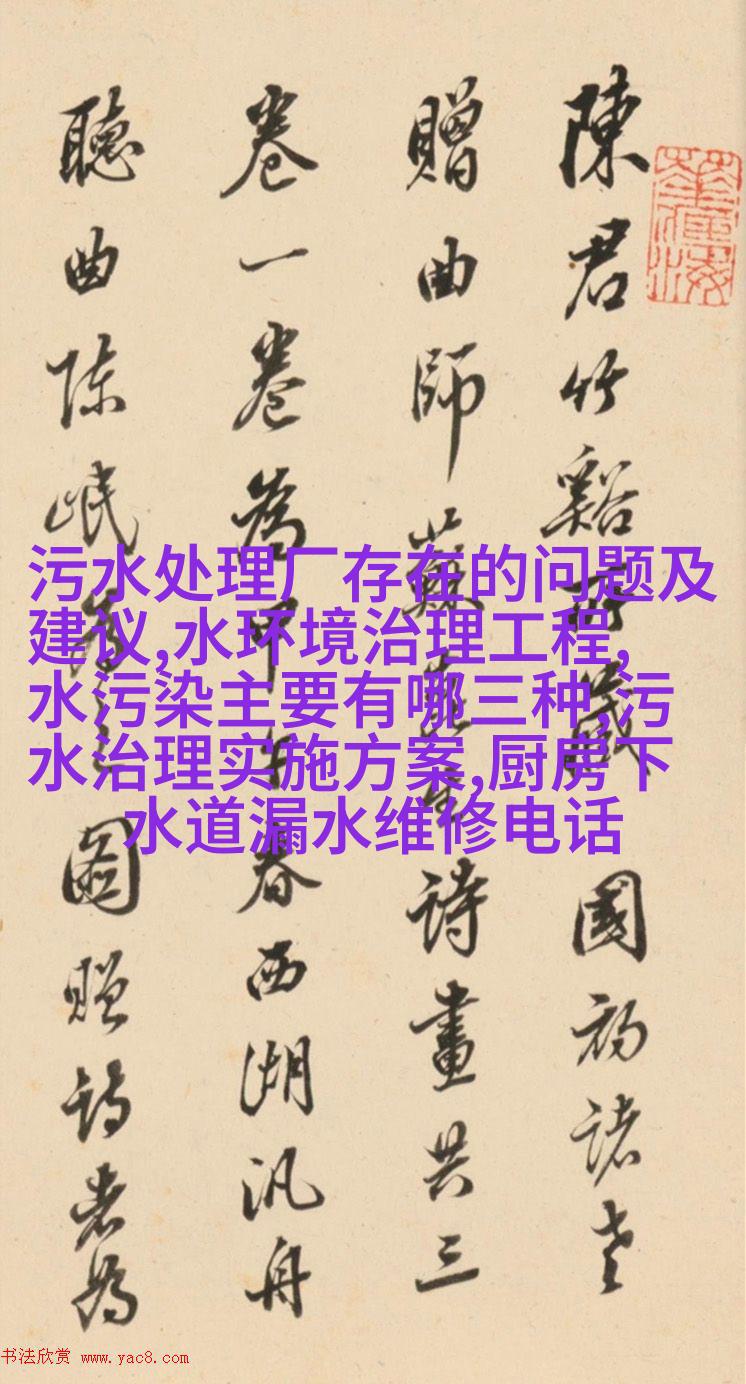 陳君竹谿所藏國初諸老
贈曲師蘇崑生詩畫共三
卷一卷為甲午春西湖汎舟
聽曲陳岷為之圖贈詩者為
污水处理厂存在的问题及
建议,水环境治理工程,
水污染主要有哪三种,污
水治理实施方案,厨房下
水道漏水维修电话
书法欣赏 www.yac8.com